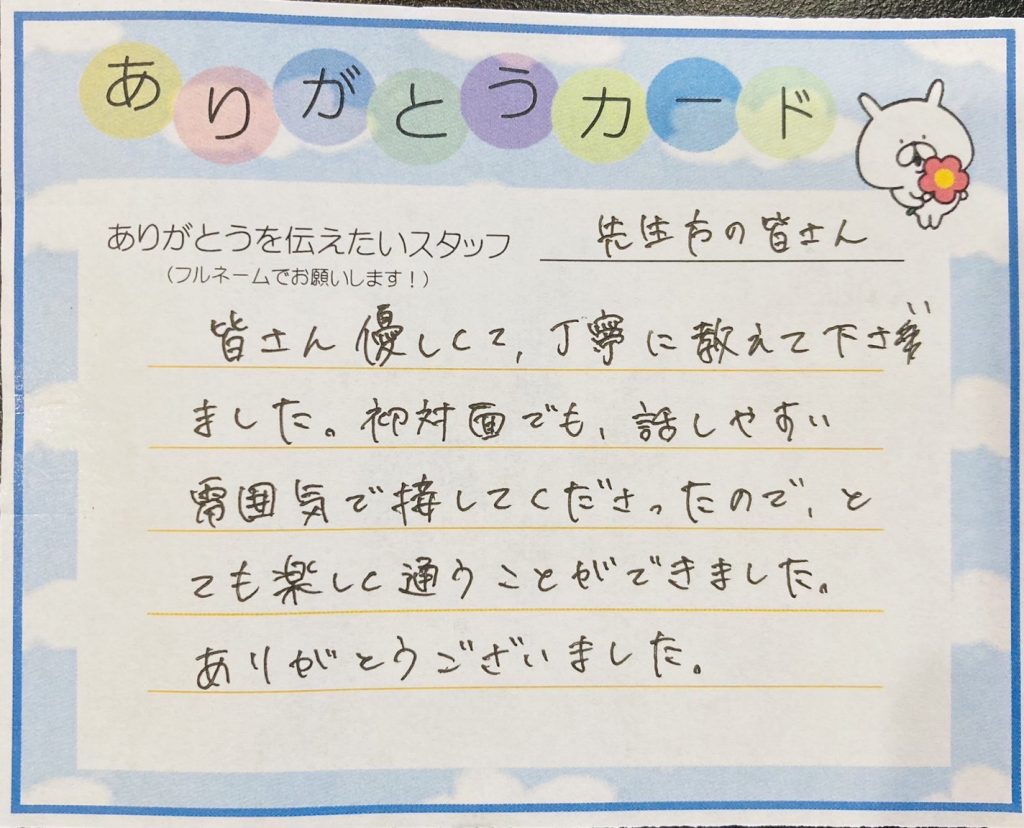 ありがとうカード
ありがとうを伝えたいスタッフ
先生方の皆さん
(フルネームでお願いします!)
皆さん優しくて,丁寧に教えて下さ
ました。初対面でも、話しやすい
雰囲気で接してくださったので、と
ても楽しく通うことができました。
ありがとうございました。